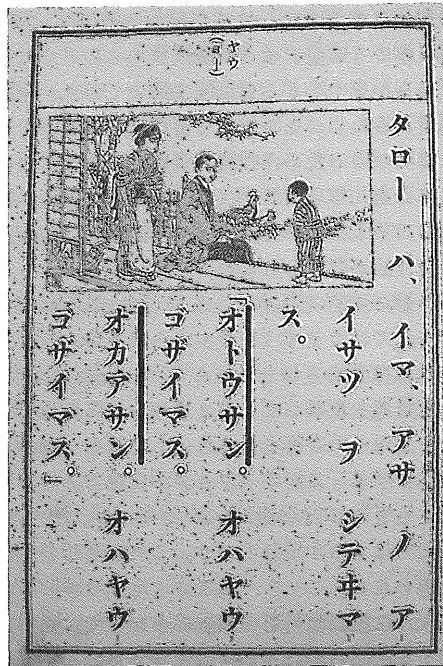 ヤウ
(ヨー)
タロー ハ、 イマ、 アサ ノ ア
イサツ ヲ シテヰマ
ス。
「オトウサン。 オハヤウ
ゴザイマス。
オカアサン。 オハヤウ
ゴザイマス。」